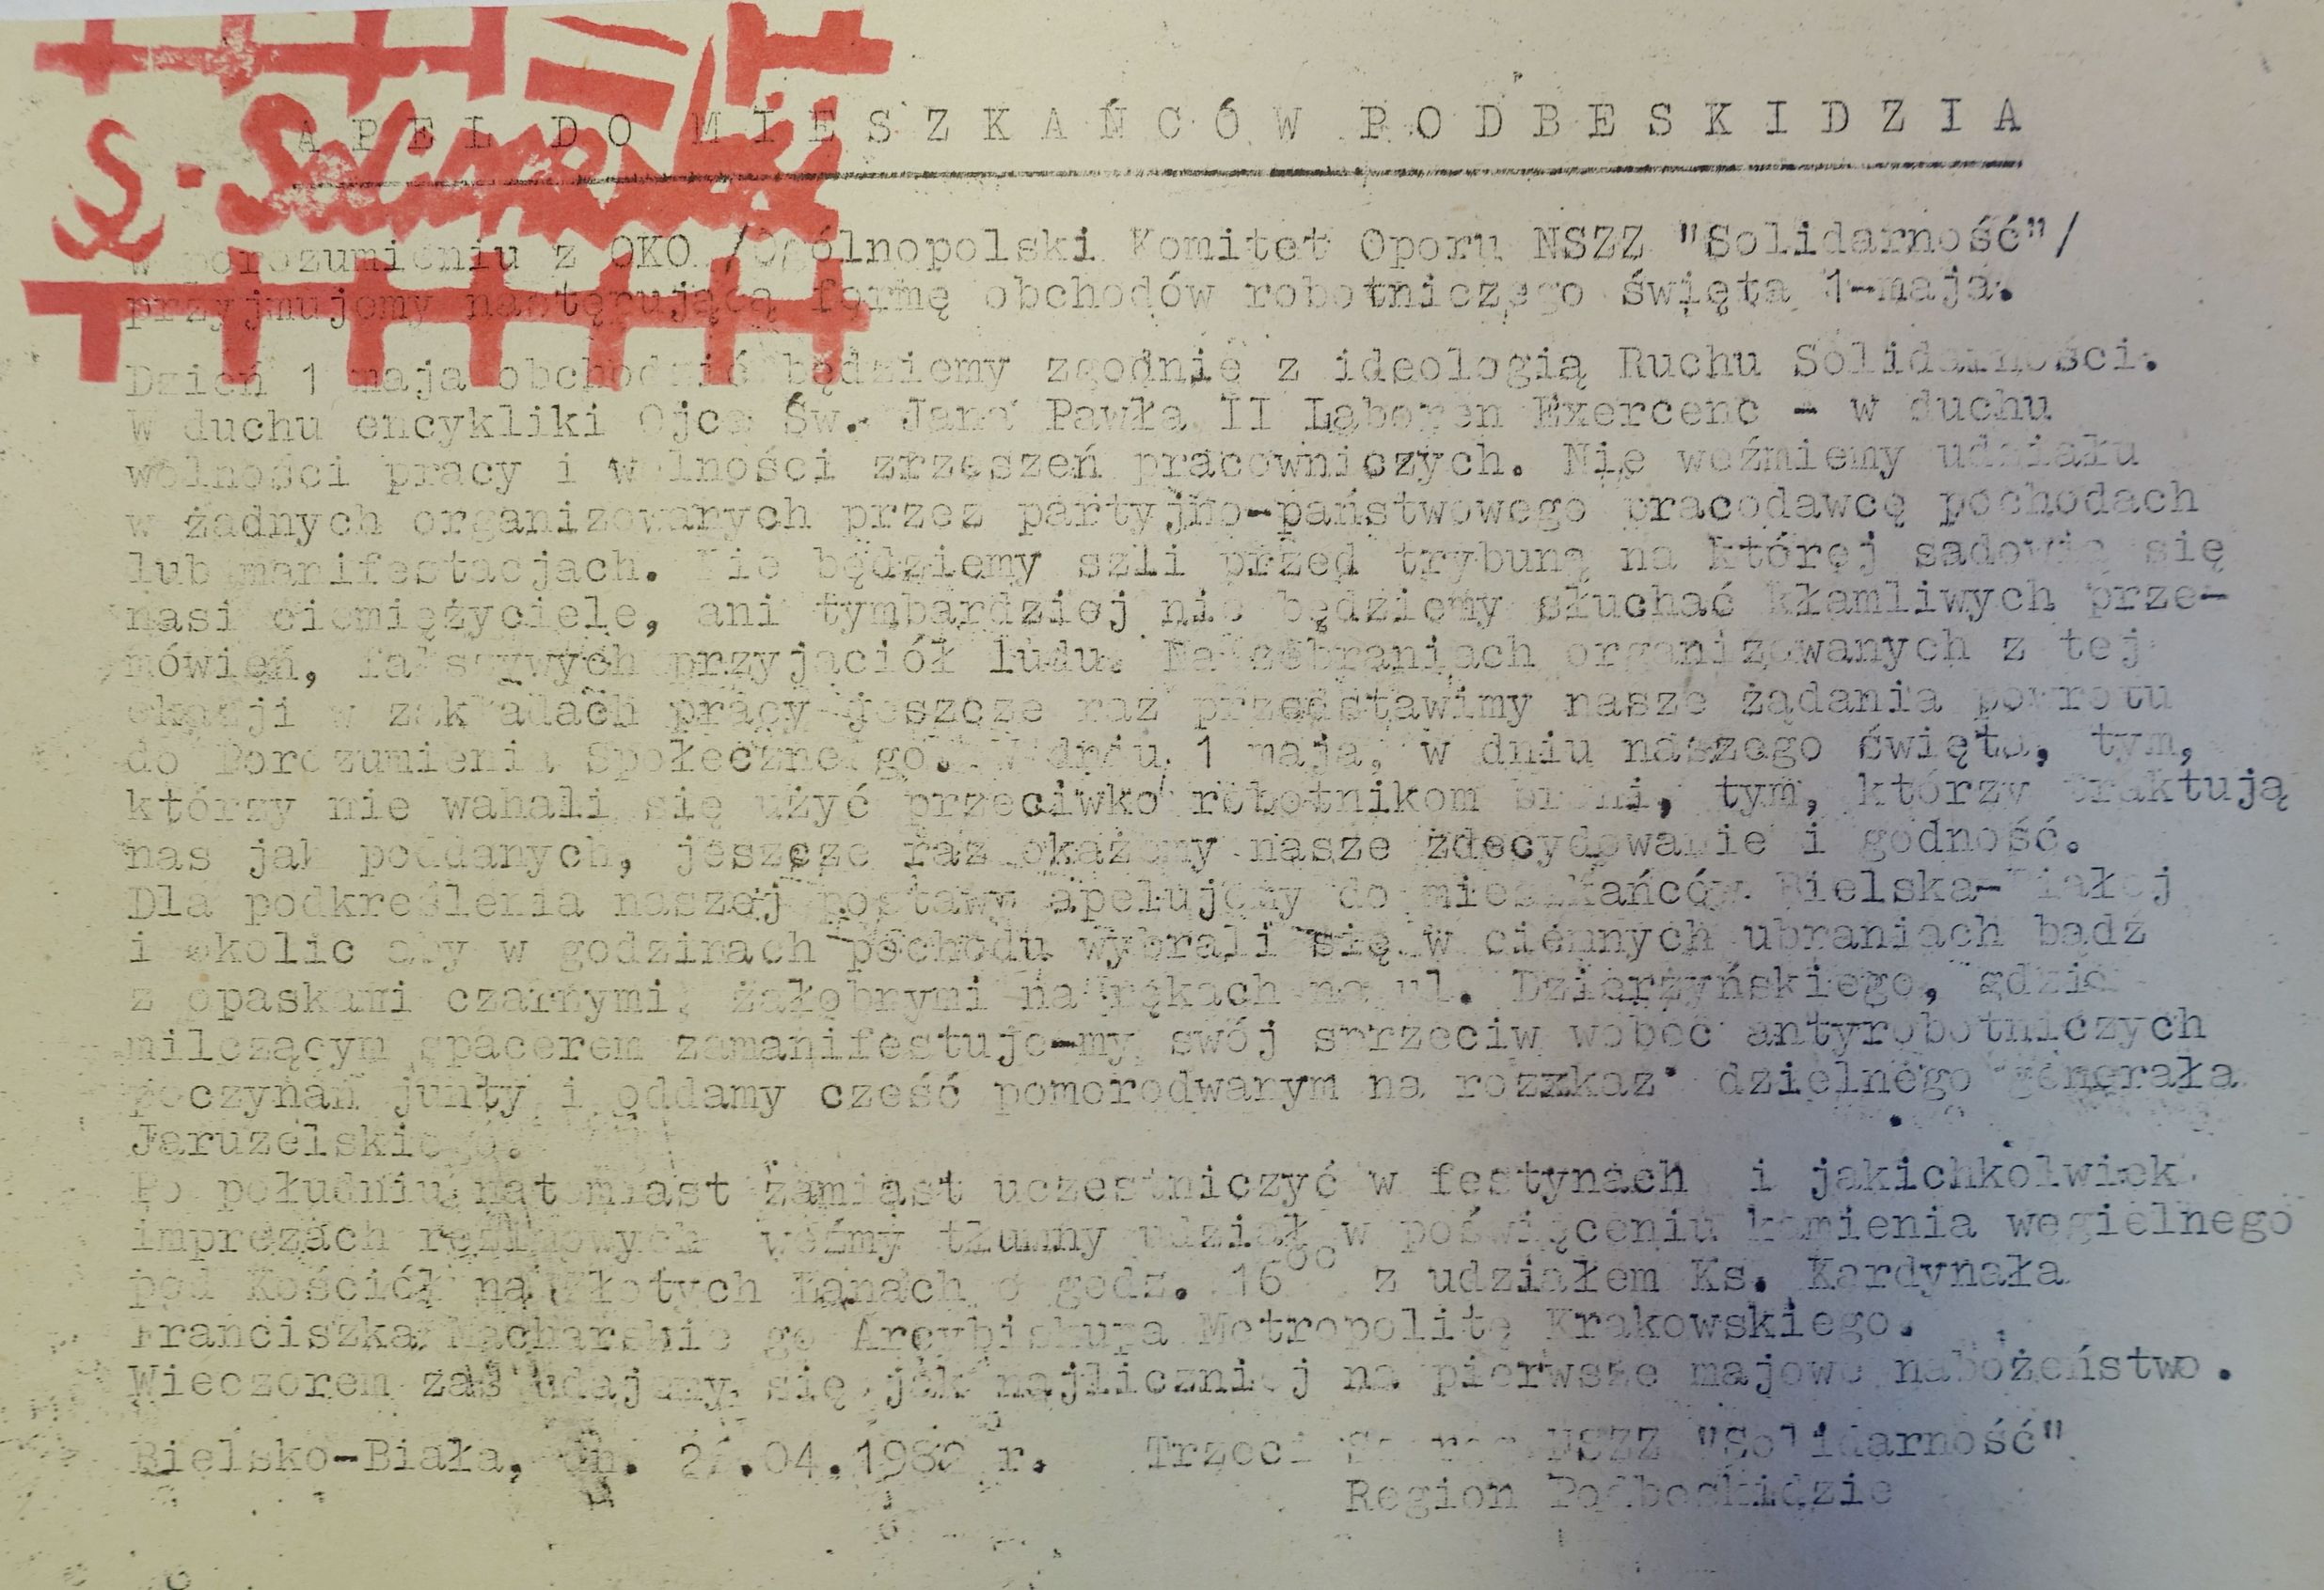 APEL DO MIESZKAŃCÓW PODBESKIDZIA
W porozumieniu z OKO /Ogólnopolski Komitet Oporu NSZZ "Solidarność"/
przyjmujemy następującą formę obchodów robotniczego święta 1-maja.
Dzień 1 maja obchodzić będziemy zgodnie z ideologią Ruchu Solidarności.
W duchu encykliki Ojca Św. Jana Pawła II Laborem Exercenc - w duchu
wolności pracy i wolności zrzeszeń pracowniczych. Nie weźmiemy udziału
w żadnych organizowanych przez partyjno-państwowego pracodawcę pochodach
lub manifestacjach. Nie będziemy szli przed trybuną na której sadowią się
nasi ciemiężyciele, ani tymbardziej nie będziemy słuchać kłamliwych prze-
mówień, fałszywych przyjaciół ludu. Na zebraniach organizowanych z tej
okazji w zakładach pracy jeszcze raz przedstawimy nasze żądania powrotu
do Porozumienia Społecznego. W dniu 1 maja, w dniu naszego święta, tym,
którzy nie wahali się użyć przeciwko robotnikom broni, tym, którzy traktują
nas jak poddanych, jeszcze raz okażemy nasze zdecydowanie i godność.
Dla podkreślenia naszej postawy apelujemy do mieszkańców Bielska-Białej
i okolic aby w godzinach pochodu wybrali się w ciemnych ubraniach bądź
z opaskami czarnymi, żałobnymi na rękach na ul. Dzierżyńskiego, gdzie
milczącym spacerem zamanifestuje-my swój sprzeciw wobec antyrobotniczych
poczynań junty i oddamy cześć pomorodwanym na rozzkaz dzielnego generała
Jaruzelskiego.
Po południu natomiast zamiast uczestniczyć w festynach i jakichkolwiek
imprezach reżimowych weźmy tłumny udział w poświęceniu kamienia węgielnego
pod Kościół na Złotych Łanach o godz. 16⁰⁰ z udziałem Ks. Kardynała
Franciszka Macharskie go Arcybiskupa Metropolitę Krakowskiego.
Wieczorem zaś udajemy się jak najliczniej na pierwsze majowe nabożeństwo.
Bielsko-Biała, dn. .04.1982 r. Trzeci NSZZ "Solidarność"
Region Podbeskidzie